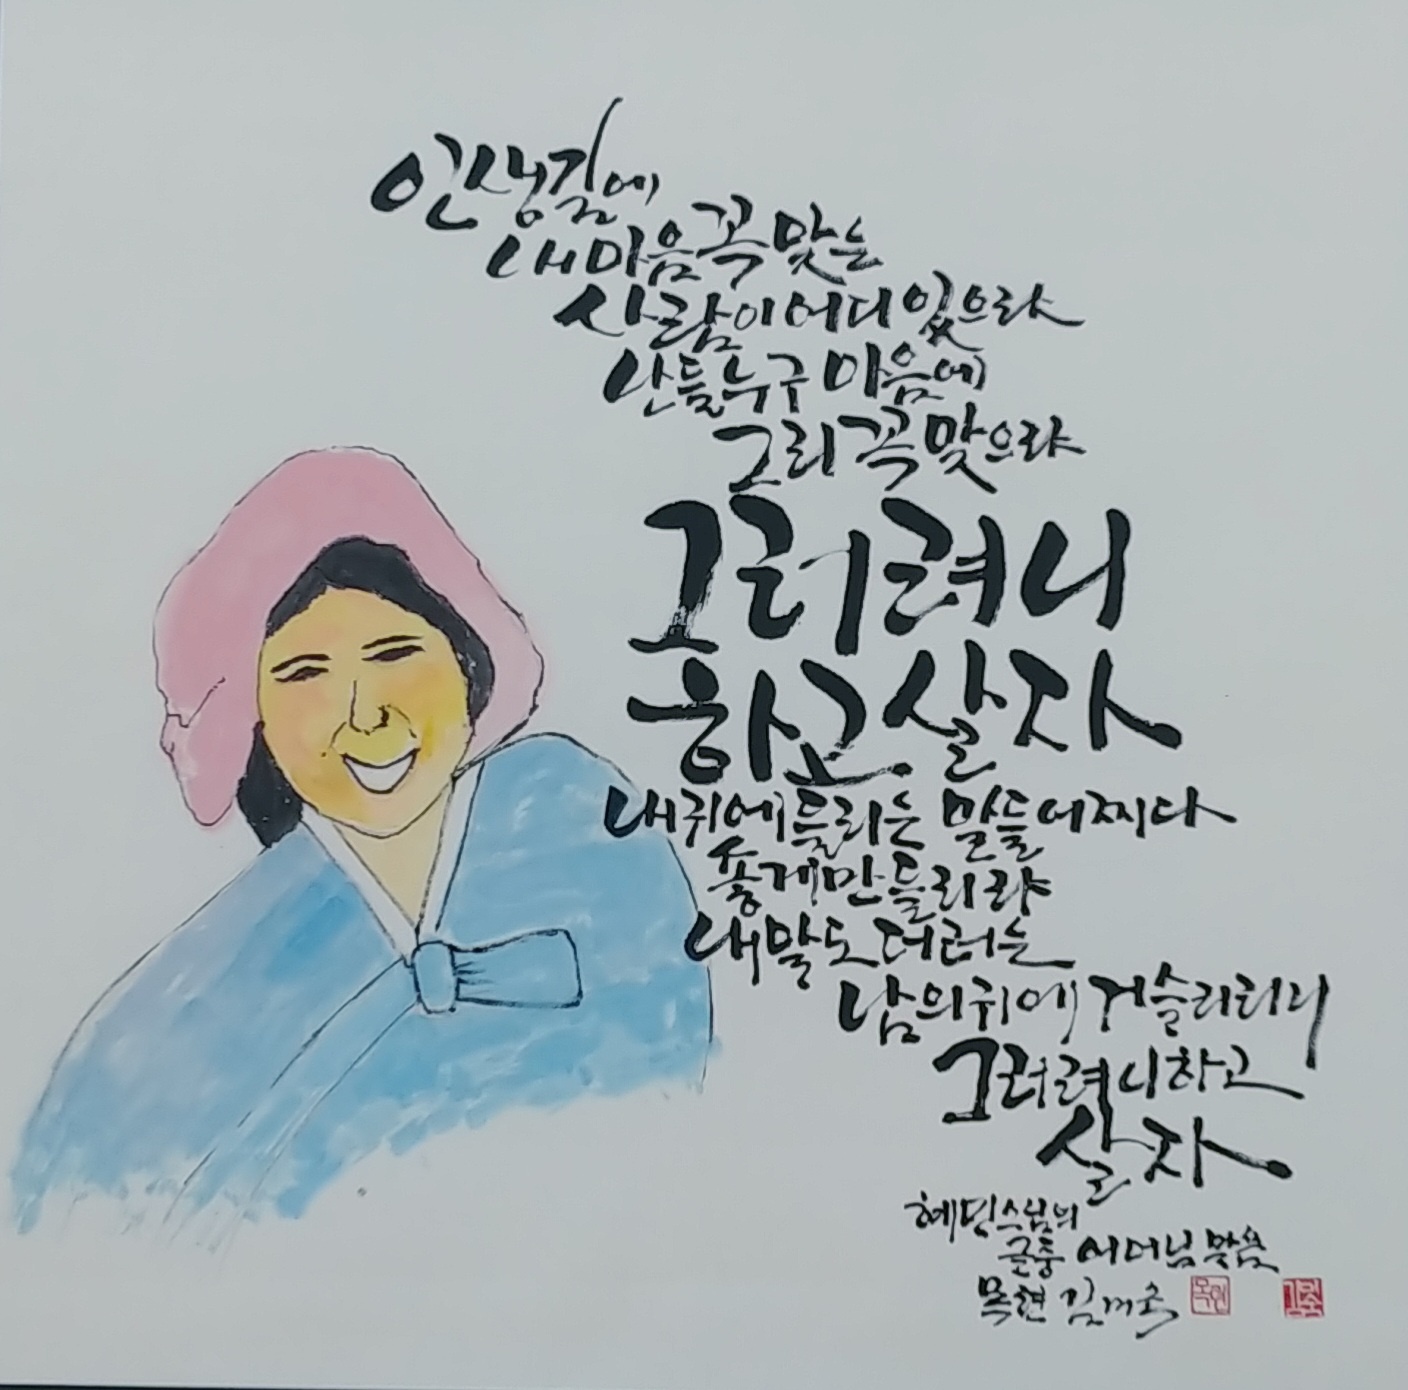 인생길에
내 마음 꼭 맞는
사람이 어디 있으랴
난들 누구 마음에
그리 꼭 맞으랴
그러려니
하고 살자
내 귀에 들리는 말들 어찌 다
좋게만 들리랴
내 말도 더러는
남의 귀에 거슬리려니
그러려니 하고
살자
혜민스님의
글중 어머님 말씀
목현 김